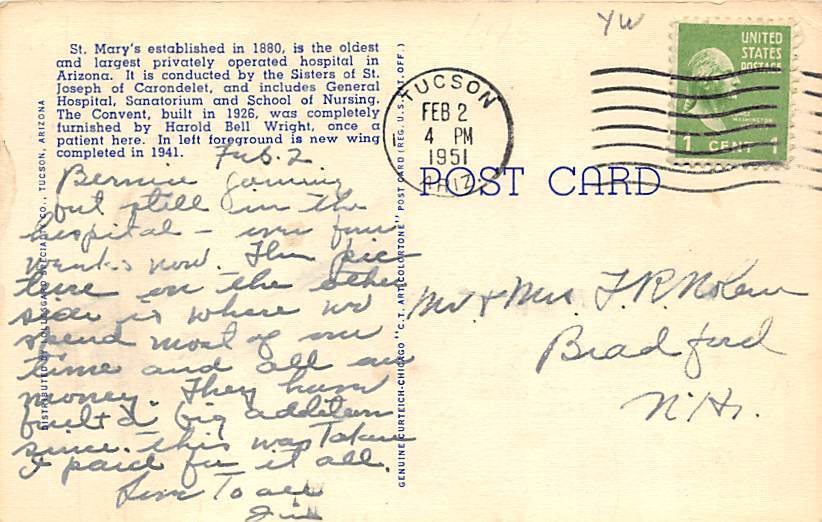 St. Mary's established in 1880, is the oldest
and largest privately operated hospital in
Arizona. It is conducted by the Sisters of St.
Joseph of Carondelet, and includes General
Hospital, Sanatorium and School of Nursing.
The Convent, built in 1926, was completely
furnished by Harold Bell Wright, once a
patient here. In left foreground is new wing
completed in 1941.
Feb. 2
Bernice gaining
but still in the
hospital - over four
weeks now. The pic-
ture on the other
side is where we
spend most of our
time and all our
money. They have
built a big addition
since this was taken
I paid for it all.
Love to all
Jim
DISTRIBUTED BY LOLLESGARD SPECIALTY CO., TUCSON, ARIZONA
GENUINE CURTEICH-CHICAGO "C.T. ART-COLORTONE" POST CARD (REG. U.S. PAT. OFF.)
YW
TUCSON
FEB 2
4 PM
1951
ARIZ.
UNITED
STATES
POSTAGE
WASHINGTON
1 CENT 1
POST CARD
Mr & Mrs. F. R. Nolen
Bradford
N.H.